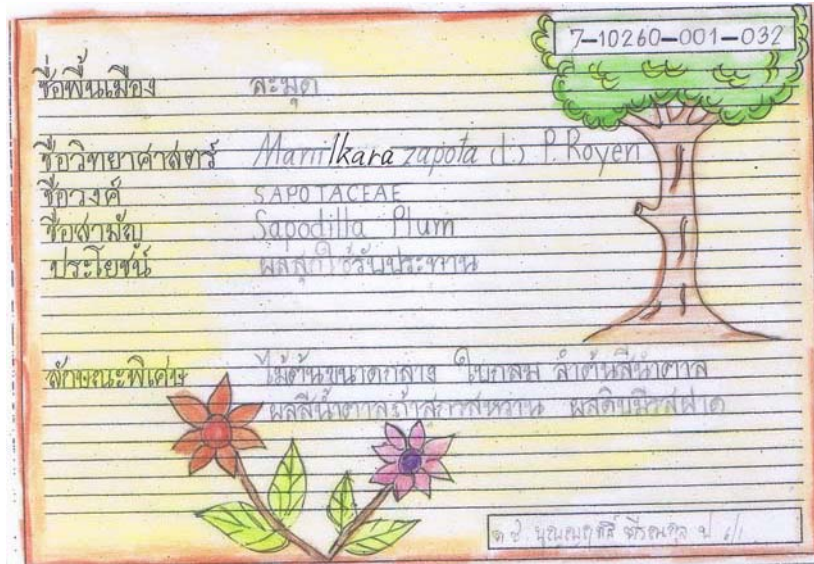 7-10260-001-032
ชื่อพื้นเมือง ละมุด
ชื่อวิทยาศาสตร์ Manilkara zapota (L.) P. Royen
ชื่อวงศ์ SAPOTACEAE
ชื่อสามัญ Sapodilla Plum
ประโยชน์ ผลสุกใช้รับประทาน
ลักษณะพิเศษ ไม้ต้นขนาดกลาง ใบกลม ลำต้นสีน้ำตาล
ผลสีน้ำตาลถ้าสุกรสหวาน ผลดิบมีรสฝาด
ด.ช. ป 6/1